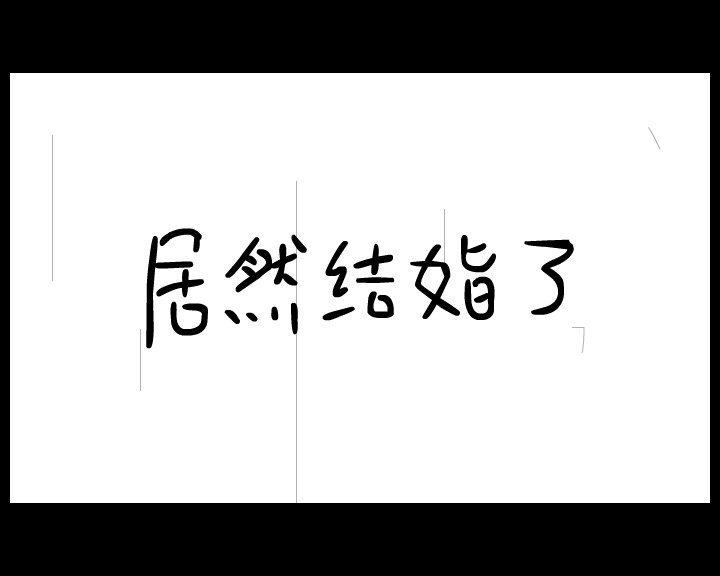 居然结婚了